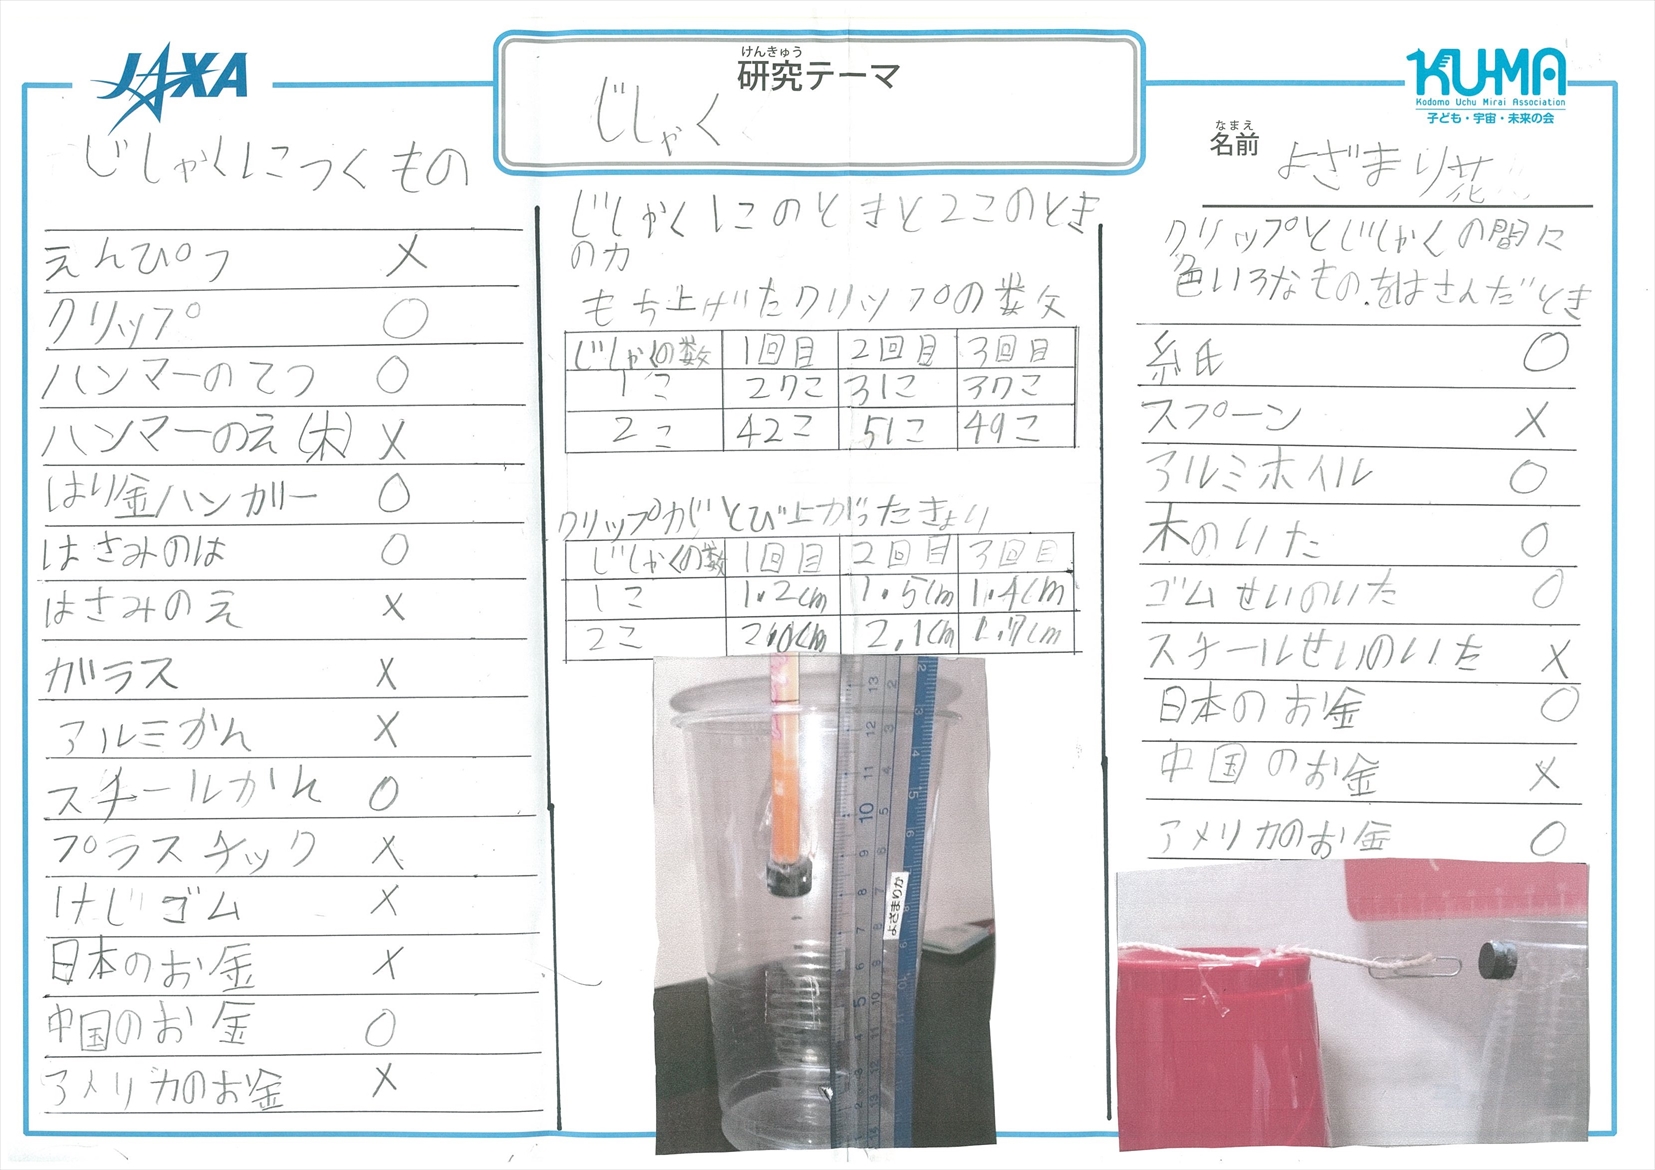 JAXA
けんきゅう
研究テーマ
じしゃく
KU-MA
Kodomo Uchu Mirai Association
子ども・宇宙・未来の会
なまえ
名前 よざまり花
じしゃくにつくもの
えんぴつ ×
クリップ ○
ハンマーのてつ ○
ハンマーのえ(木) ×
はり金ハンガリー ○
はさみのは ○
はさみのえ ×
ガラス ×
アルミかん ×
スチールかん ○
プラスチック ×
けじゴム ×
日本のお金 ×
中国のお金 ○
アメリカのお金 ×
じしゃく1このときと2このとき
の力
もち上げたクリップの数
じしゃくの数 1回目 2回目 3回目
1こ 27こ 31こ 37こ
2こ 42こ 51こ 49こ
クリップがとび上がったきょり
じしゃくの数 1回目 2回目 3回目
1こ 1.2cm 1.5cm 1.4cm
2こ 2.0cm 2.1cm 1.7cm
よざまりか
クリップとじしゃくの間に
色いろなものをはさんだとき
紙 ○
スプーン ×
アルミホイル ○
木のいた ○
ゴムせいのいた ○
スチールせいのいた ×
日本のお金 ○
中国のお金 ×
アメリカのお金 ○